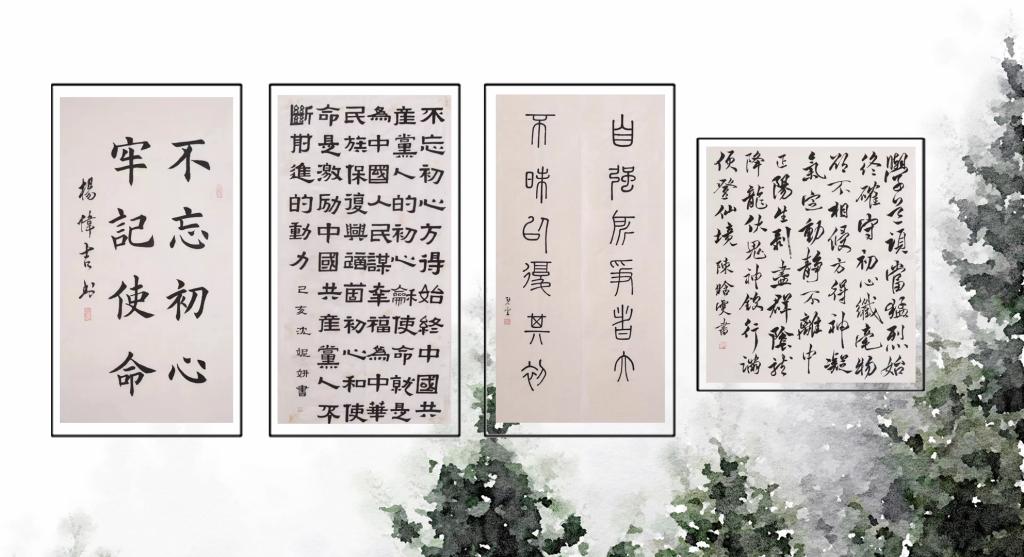 不忘初心
牢記使命
楊偉吉书
不忘初心方得始終中國共
産黨人的初心龢使命就是
為中國人民謀幸福為中華
民族保復興這箇初心和使
命是激励中國共産黨人不
斷前進的動力 己亥沈妮妍書
自强所爭者大
不昧以復其初
學道須當猛烈始
終確守初心纖毫物
欲不相侵方得神凝
氣定動靜不離中
正陽生剝盡群陰龍
降虎伏鬼神欽行滿
便登仙境 陳書